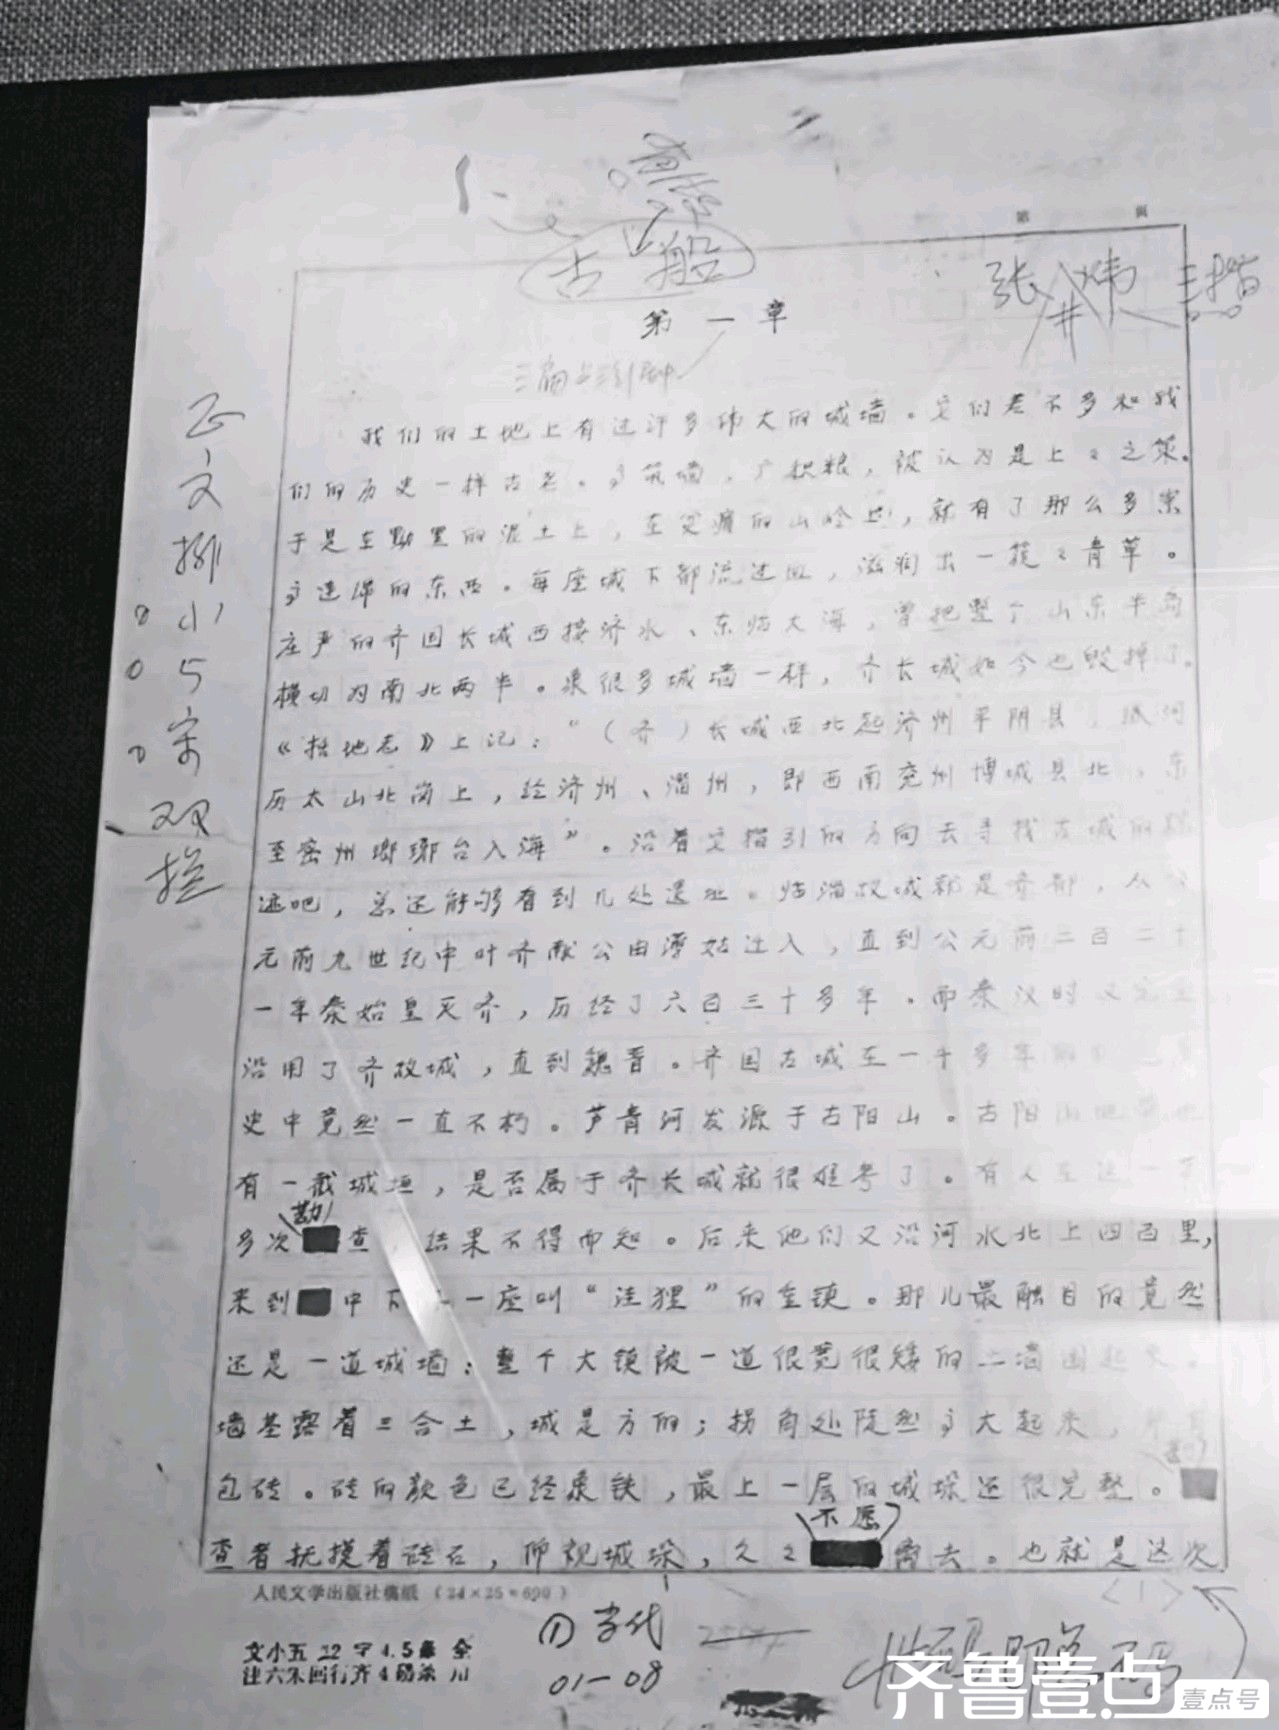 第 页
古船
张炜
三楷
第一章
正文排小5宋双栏
我们的土地上有过许多伟大的城墙。它们差不多和我
们的历史一样古老。高筑墙,广积粮,被认为是上々之策。
于是在黝黑的泥土上,在贫瘠的山岭上,就有了那么多崇
高连绵的东西。每座城下都流过血,滋润出一拢々青草。
庄严的齐国长城西接济水、东临大海,曾把整个山东半岛
横切为南北两半。象很多城墙一样,齐长城如今也毁掉了。
《括地志》上记:“(齐)长城西北起济州平阴县,缘河
历太山北岗上,经济州、淄州,即西南兖州博城县北,东
至密州琅琊台入海”。沿着文指引的方向去寻找古城的踪
迹吧,总还能够看到几处遗址。临淄故城就是齐都,从公
元前九世纪中叶齐献公由薄姑迁入,直到公元前二百二十
一年秦始皇灭齐,历经了六百三十多年。而秦汉时又完全
沿用了齐故城,直到魏晋。齐国古城在一千多年
史中竟然一直不朽。芦青河发源于古阳山。古阳山
有一截城垣,是否属于齐长城就很难考了。有人在这
多次勘查,结果不得而知。后来他们又沿河水北上四百里,
来到 中下 一座叫“洼狸”的重镇。那儿最触目的竟然
还是一道城墙:整个大镇被一道很宽很矮的土墙围起来。
墙基露着三合土,城是方的;拐角处陡然高大起来,
包砖。砖的颜色已经象铁,最上一层的城垛还很完整。勘
查者抚摸着砖石,仰视城垛,久々不愿离去。也就是这次
人民文学出版社稿纸(24×25=600)
<1>
①当代
01-08
文小五22字4.5条全
齐鲁壹点
壹点号